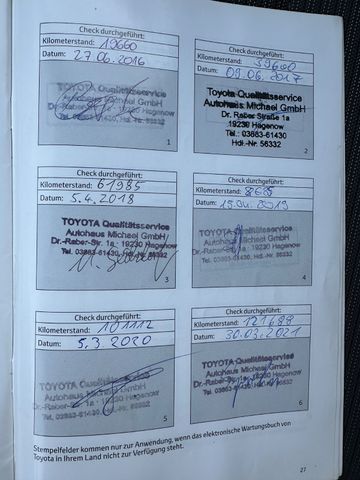 Check durchgeführt:
Kilometerstand: 19660
Datum: 27.06.2016
TOYOTA Qualitätsservice
Autohaus Michael GmbH
Dr.-Raber-Str. 1a · 19230 Hagenow
Tel. 03883-61430, Hdl.-Nr. 56332
1
Check durchgeführt:
Kilometerstand: 39600
Datum: 09.06.2017
TOYOTA Qualitätsservice
Autohaus Michael GmbH
Dr. Raber Straße 1a
19230 Hagenow
Tel.: 03883-61430
Hdl.-Nr. 56332
2
Check durchgeführt:
Kilometerstand: 61985
Datum: 5.4.2018
TOYOTA Qualitätsservice
Autohaus Michael GmbH
Dr.-Raber-Str. 1a · 19230 Hagenow
Tel. 03883-61430, Hdl.-Nr. 56332
3
Check durchgeführt:
Kilometerstand:
Datum: 15.04.2019
TOYOTA Qualitätsservice
Autohaus Michael GmbH
Dr.-Raber-Str. 1a · 19230 Hagenow
Tel. 03883-61430, Hdl.-Nr. 56332
4
Check durchgeführt:
Kilometerstand: 101112
Datum: 5.3.2020
TOYOTA Qualitätsservice
Autohaus Michael GmbH
Dr.-Raber-Str. 1a · 19230 Hagenow
Tel. 03883-61430, Hdl.-Nr. 56332
5
Check durchgeführt:
Kilometerstand: 121688
Datum: 30.03.2021
TOYOTA Qualitätsservice
Autohaus Michael GmbH
Dr.-Raber-Str. 1a · 19230 Hagenow
Tel. 03883-61430, Hdl.-Nr. 56332
6
Stempelfelder kommen nur zur Anwendung, wenn das elektronische Wartungsbuch von
Toyota in Ihrem Land nicht zur Verfügung steht.
27